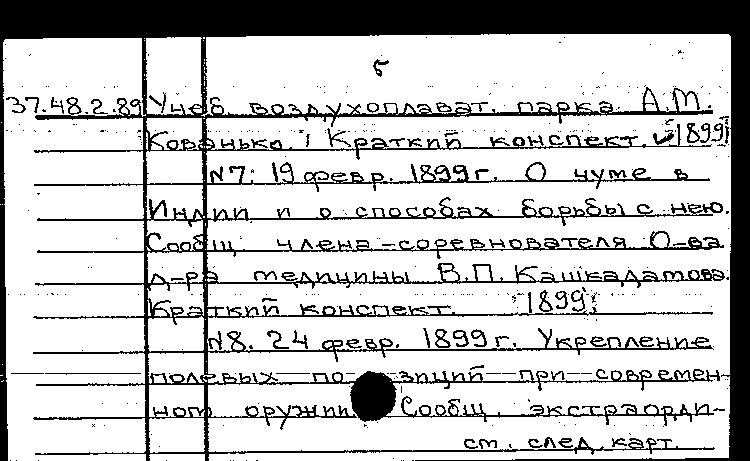 5
37.48.2.89 Учеб. воздухоплават. парка А.М.
Кованько. Краткий конспект. 1899
N7: 19 февр. 1899г. О чуме в
Индии и о способах борьбы с нею.
Сообщ. члена-соревнователя О-ва
д-ра медицины В.П. Кашкадамова.
Краткий конспект. 1899
N8. 24 февр. 1899г. Укрепление
полевых позиций при современ-
ном оружии. Сообщ. экстраорди-
см. след. карт.